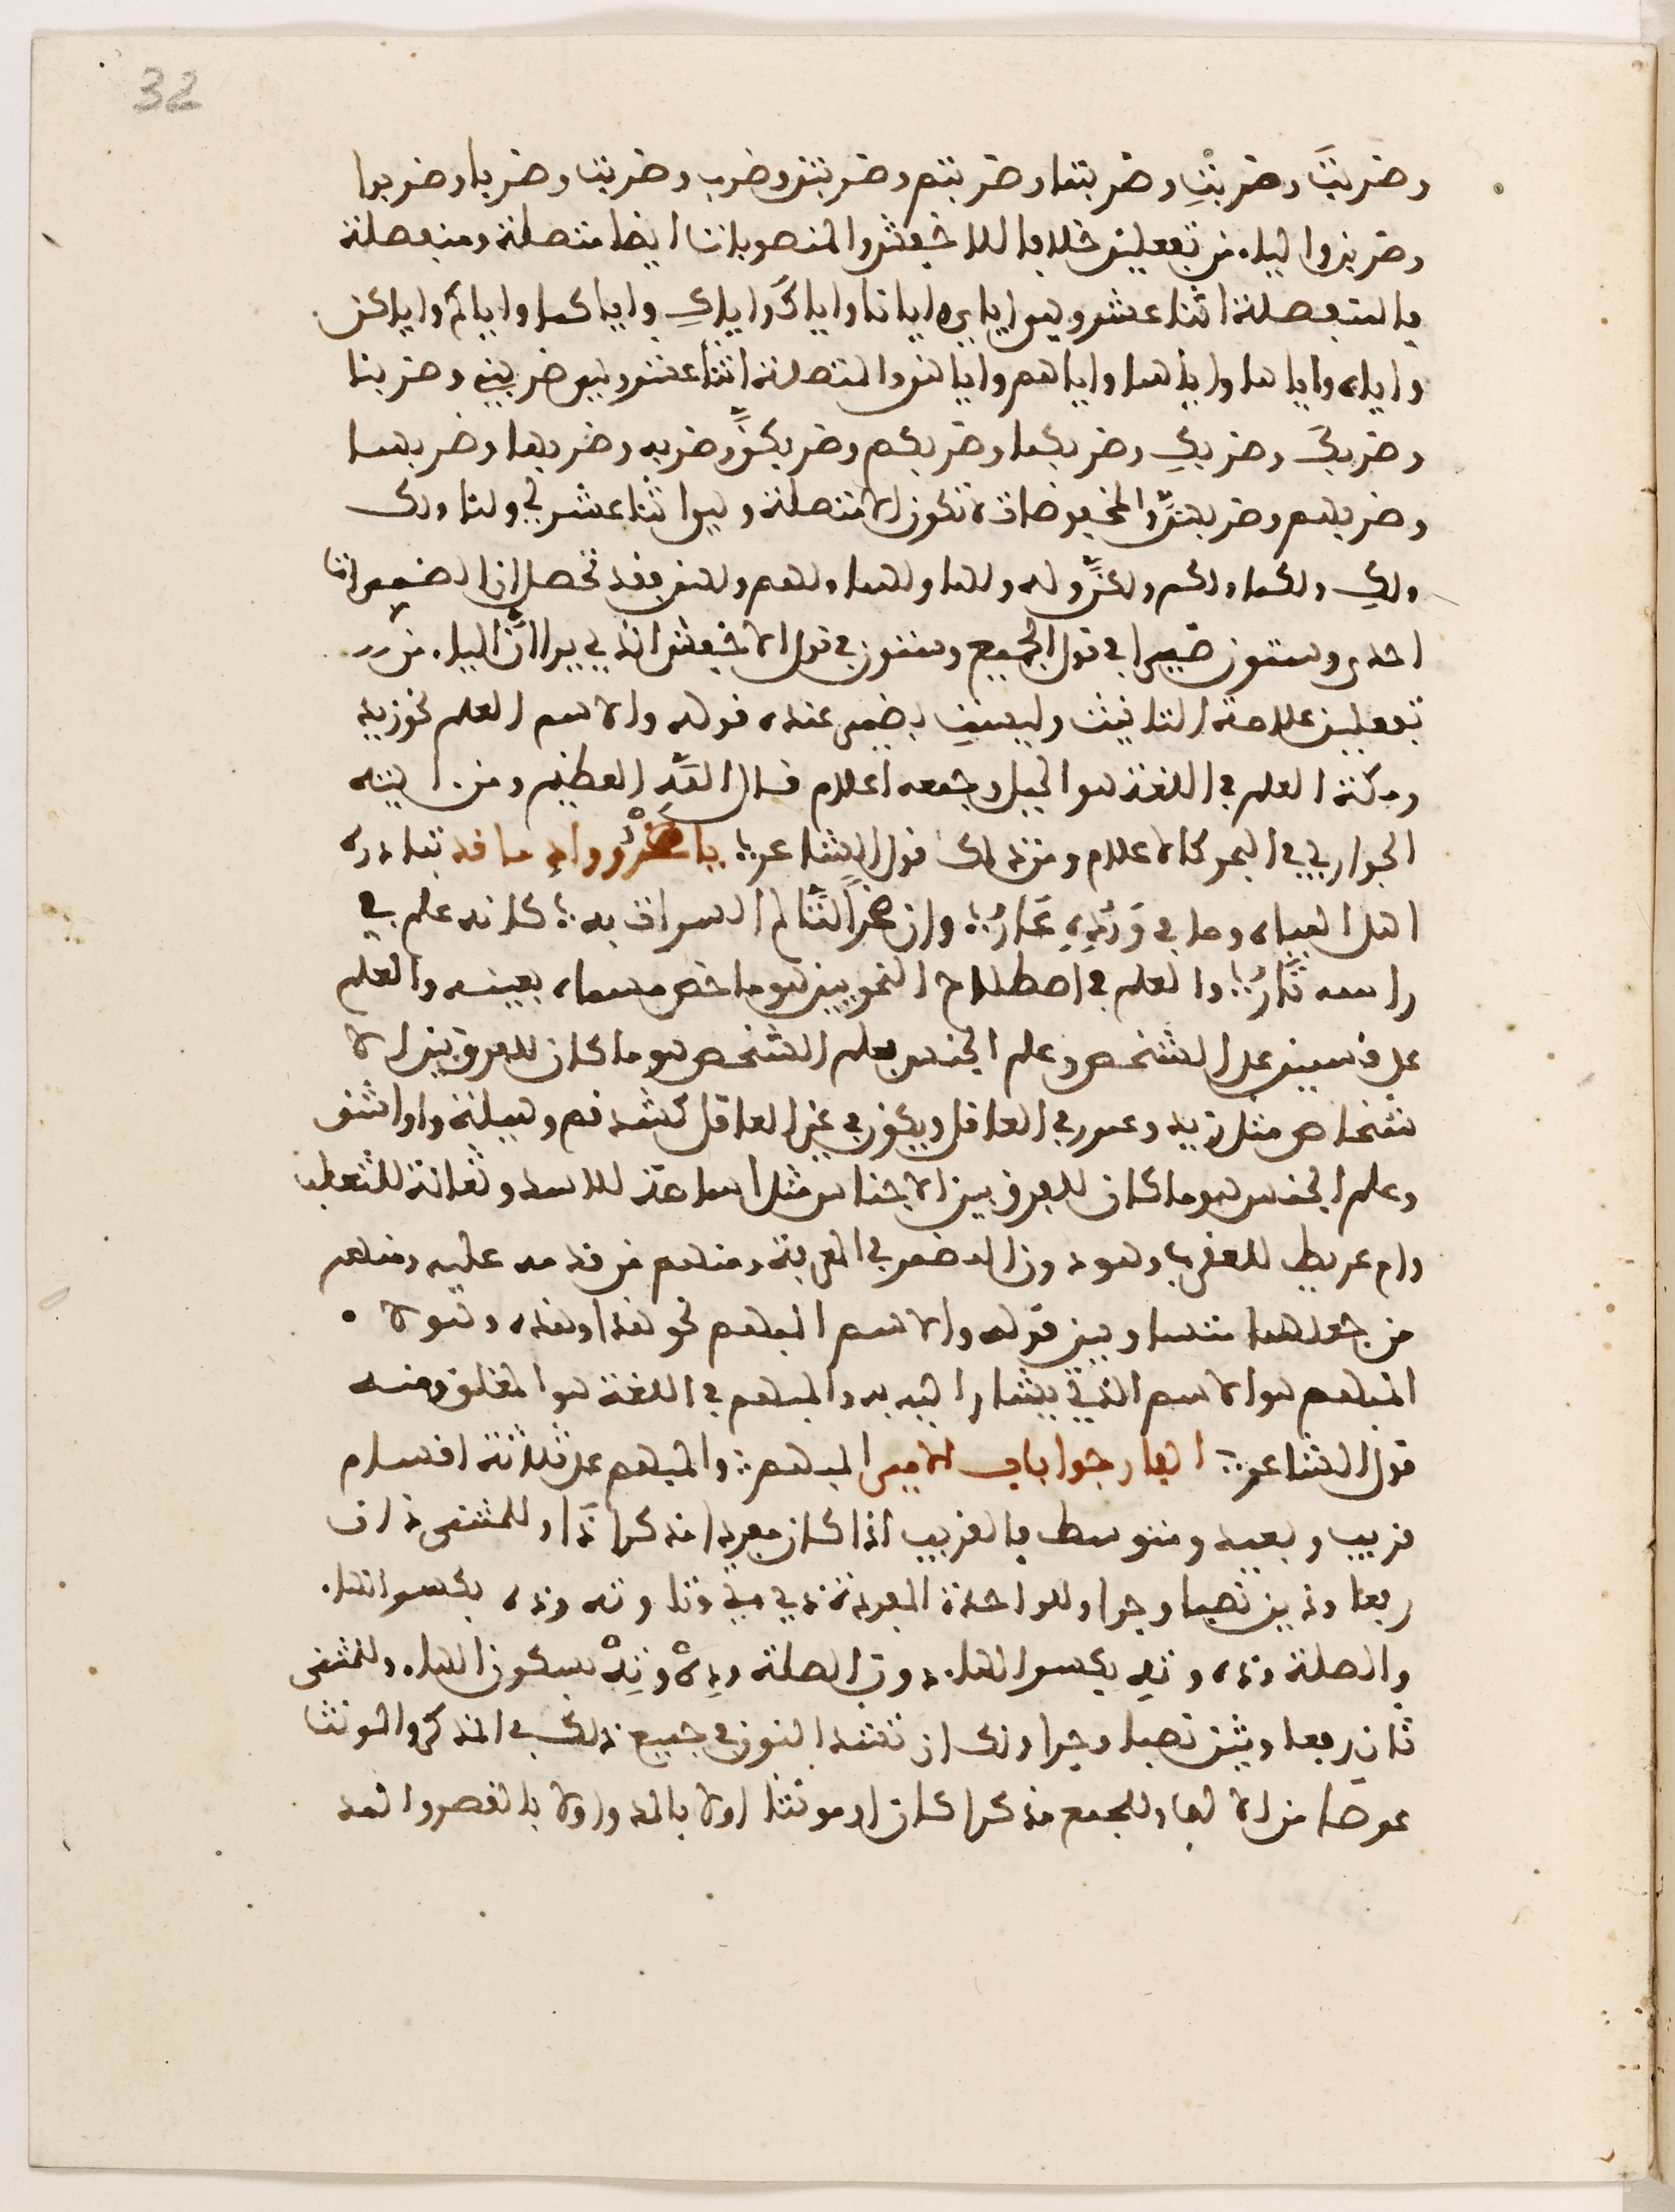 32
وضربتَ وضربتِ وضربتما وضربتم وضربتن وضرب وضربت وضربا وضربوا
وضربن والياء من تفعلين خلافا للاخفش والمنصوبات ايضا متصلة ومنفصلة
فالمنفصلة اثنا عشر وهي اياي وايانا واياكَ واياكِ واياكما واياكم واياكن
واياه واياها واياهما واياهم واياهن والمتصلة اثنا عشر وهي ضربني وضربنا
وضربكَ وضربكِ وضربكما وضربكم وضربكنَّ وضربه وضربها وضربهما
وضربهم وضربهنَّ والمخفوضات لا تكون الا متصلة وهي اثنا عشر لي ولنا ولك
ولكِ ولكما ولكم ولكنَّ وله ولها ولهما ولهم ولهن فقد تحصل ان الضميرات
احدى وستون ضميرا في قول الجميع وستون في قول الاخفش الذي يرا انَّ الياء من
تفعلين علامة التانيث وليست بضمير عنده قوله والاسم العلم نحو زيد
ومكة العلم في اللغة هو الجبل وجمعه اعلام قال اللَّه العظيم ومن اينته
الجوار في البحر كالاعلام ومن ذلك قول الشاعر ؛ يا صخرُ وراد ما قد تناذره
اهل المياه وما في وِرْدِهِ عَارُ ؛ وان صخراً لَتَاتم الـسراة به ؛ كانه علم في
راسه نَارُ ؛ والعلم في اصطلاح النحويين هو ما خص مسماه بعينه والعلم
على قسمين علم الشخص وعلم الجنس فعلم الشخص هو ما كان للفرق بين الا
شخاص مثل زيد وعمر في العاقل ويكون في غير العاقل كشدقم وهيلة وواشق
وعلم الجنس هو ما كان للفرق بين الاجناس مثل اسامة للاسد وثعالة للثعلب
وام عريط للعقرب وهو دون المضمر في المعرفة ومنهم من قدمه عليه ومنهم
من جعلهما متساويين قوله والاسم المبهم نحو هذا وهذه وهولا ه
المبهم هو الاسم الذي يشار اليه به والمبهم في اللغة هو المغلق ومنه
قول الشاعر ؛ الفارجوا باب الامير المبهم ؛ والمبهم على ثلاثة اقسام
قريب وبعيد ومتوسط فالقريب اذا كان مفردا مذكرا ذَا وللمثنى ذان
رفعا وذين نصبا وجرا وللواحدة المفردة ذي وتي وتا وته وذه بكسر الهاء
والصلة وذه وته بكسر الهاء دون الصلة وذِهْ وتِهْ بسكون الهاء وللمثنى
تان رفعا وتين نصبا وجرا ولك ان تشد النون في جميع ذلك في المذكر والمونث
عوضا من الالف وللجمع مذكرا كان او مونثا اولا بالمد واولا بالقصر والمد